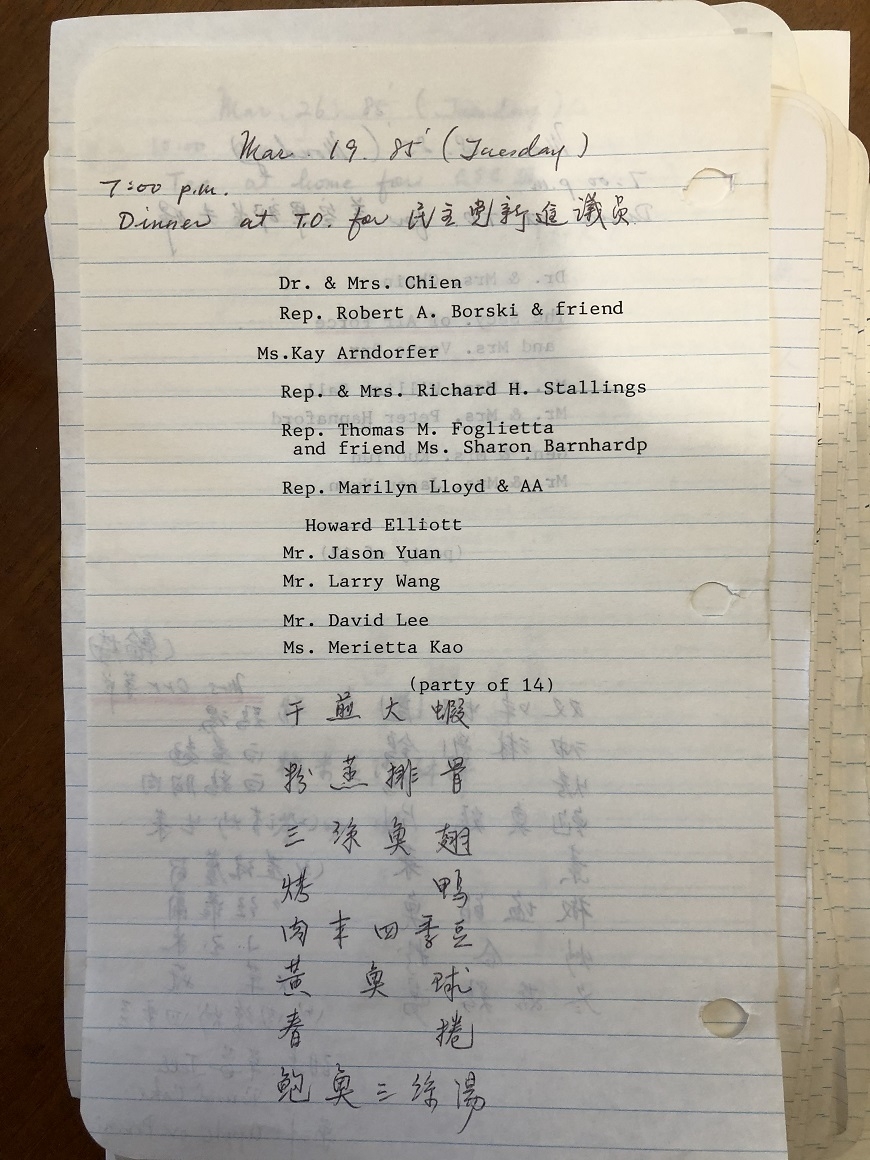 Mar. 19. 85' (Tuesday)
7:00 p.m.
Dinner at T.O. for 民主党新進議员
Dr. & Mrs. Chien
Rep. Robert A. Borski & friend
Ms.Kay Arndorfer
Rep. & Mrs. Richard H. Stallings
Rep. Thomas M. Foglietta
and friend Ms. Sharon Barnhardp
Rep. Marilyn Lloyd & AA
Howard Elliott
Mr. Jason Yuan
Mr. Larry Wang
Mr. David Lee
Ms. Merietta Kao
(party of 14)
干煎大蝦
粉蒸排骨
三絲魚翅
烤鴨
肉末四季豆
黃魚球
春捲
鮑魚三絲湯